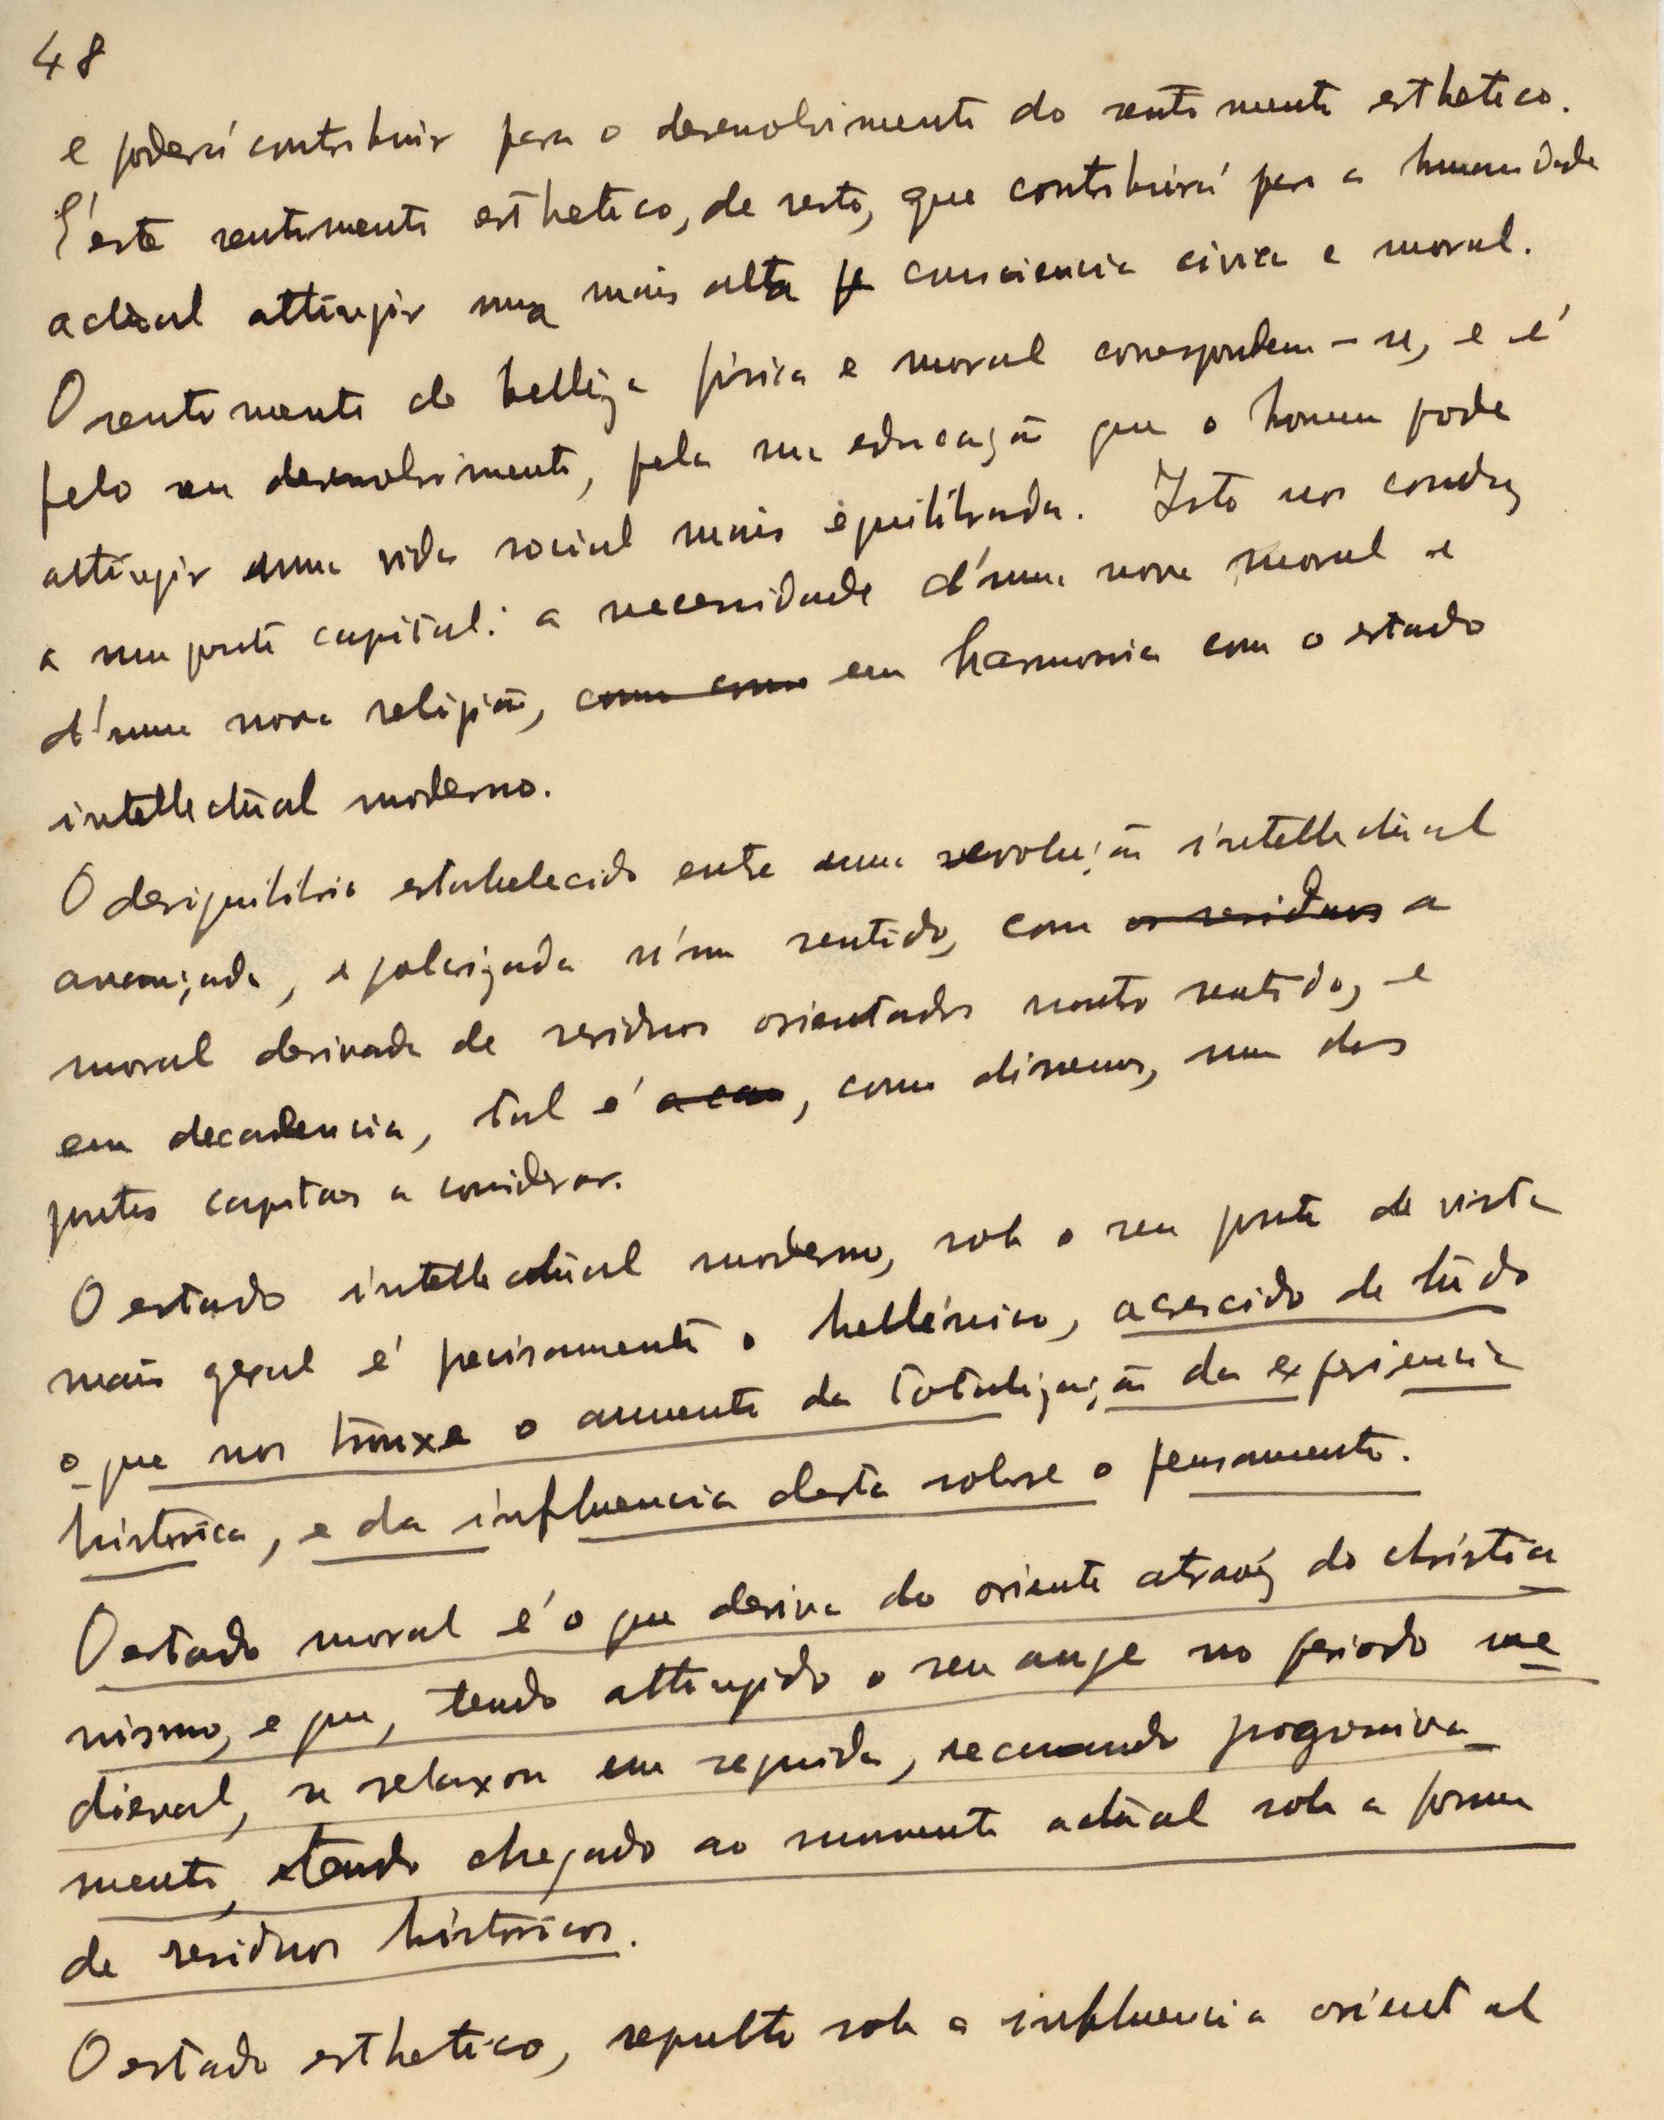 48
e poderá contribuir para o desenvolvimento do sentimento esthetico.
É este sentimento esthetico, de resto, que contribuirá para a humanidade
actual attingir uma mais alta consciencia civica e moral.
O sentimento de belleza física e moral correspondem-se, e é
pelo seu desenvolvimento, pela sua educação que o homem pode
attingir uma vida social mais equilibrada. Isto nos conduz
a um ponto capital: a necessidade d'uma nova moral e
d'uma nova religião, como como em harmonia com o estado
intellectual moderno.
O desiquilibrio estabelecido entre uma revolução intellectual
avançada, e polarizada n'um sentido, com os residuos a
moral derivada de residuos orientados noutro sentido, e
em decadencia, tal é , como dissemos, um dos
pontos capitaes a considerar.
O estado intellectual moderno, sob o seu ponto de vista
mais geral é precisamente o hellénico, acrescido de tudo
o que nos trouxe o aumento da totalização da experiencia
historica, e da influencia desta sobre o pensamento.
O estado moral é o que deriva do oriente através do christia
nismo, e que, tendo attingido o seu auge no periodo me
dieval, se relaxou em seguida, recuando progressiva
mente, e tendo chegado ao momento actual sob a forma
de residuos historicos.
O estado esthetico, sepulto sob a influencia oriental